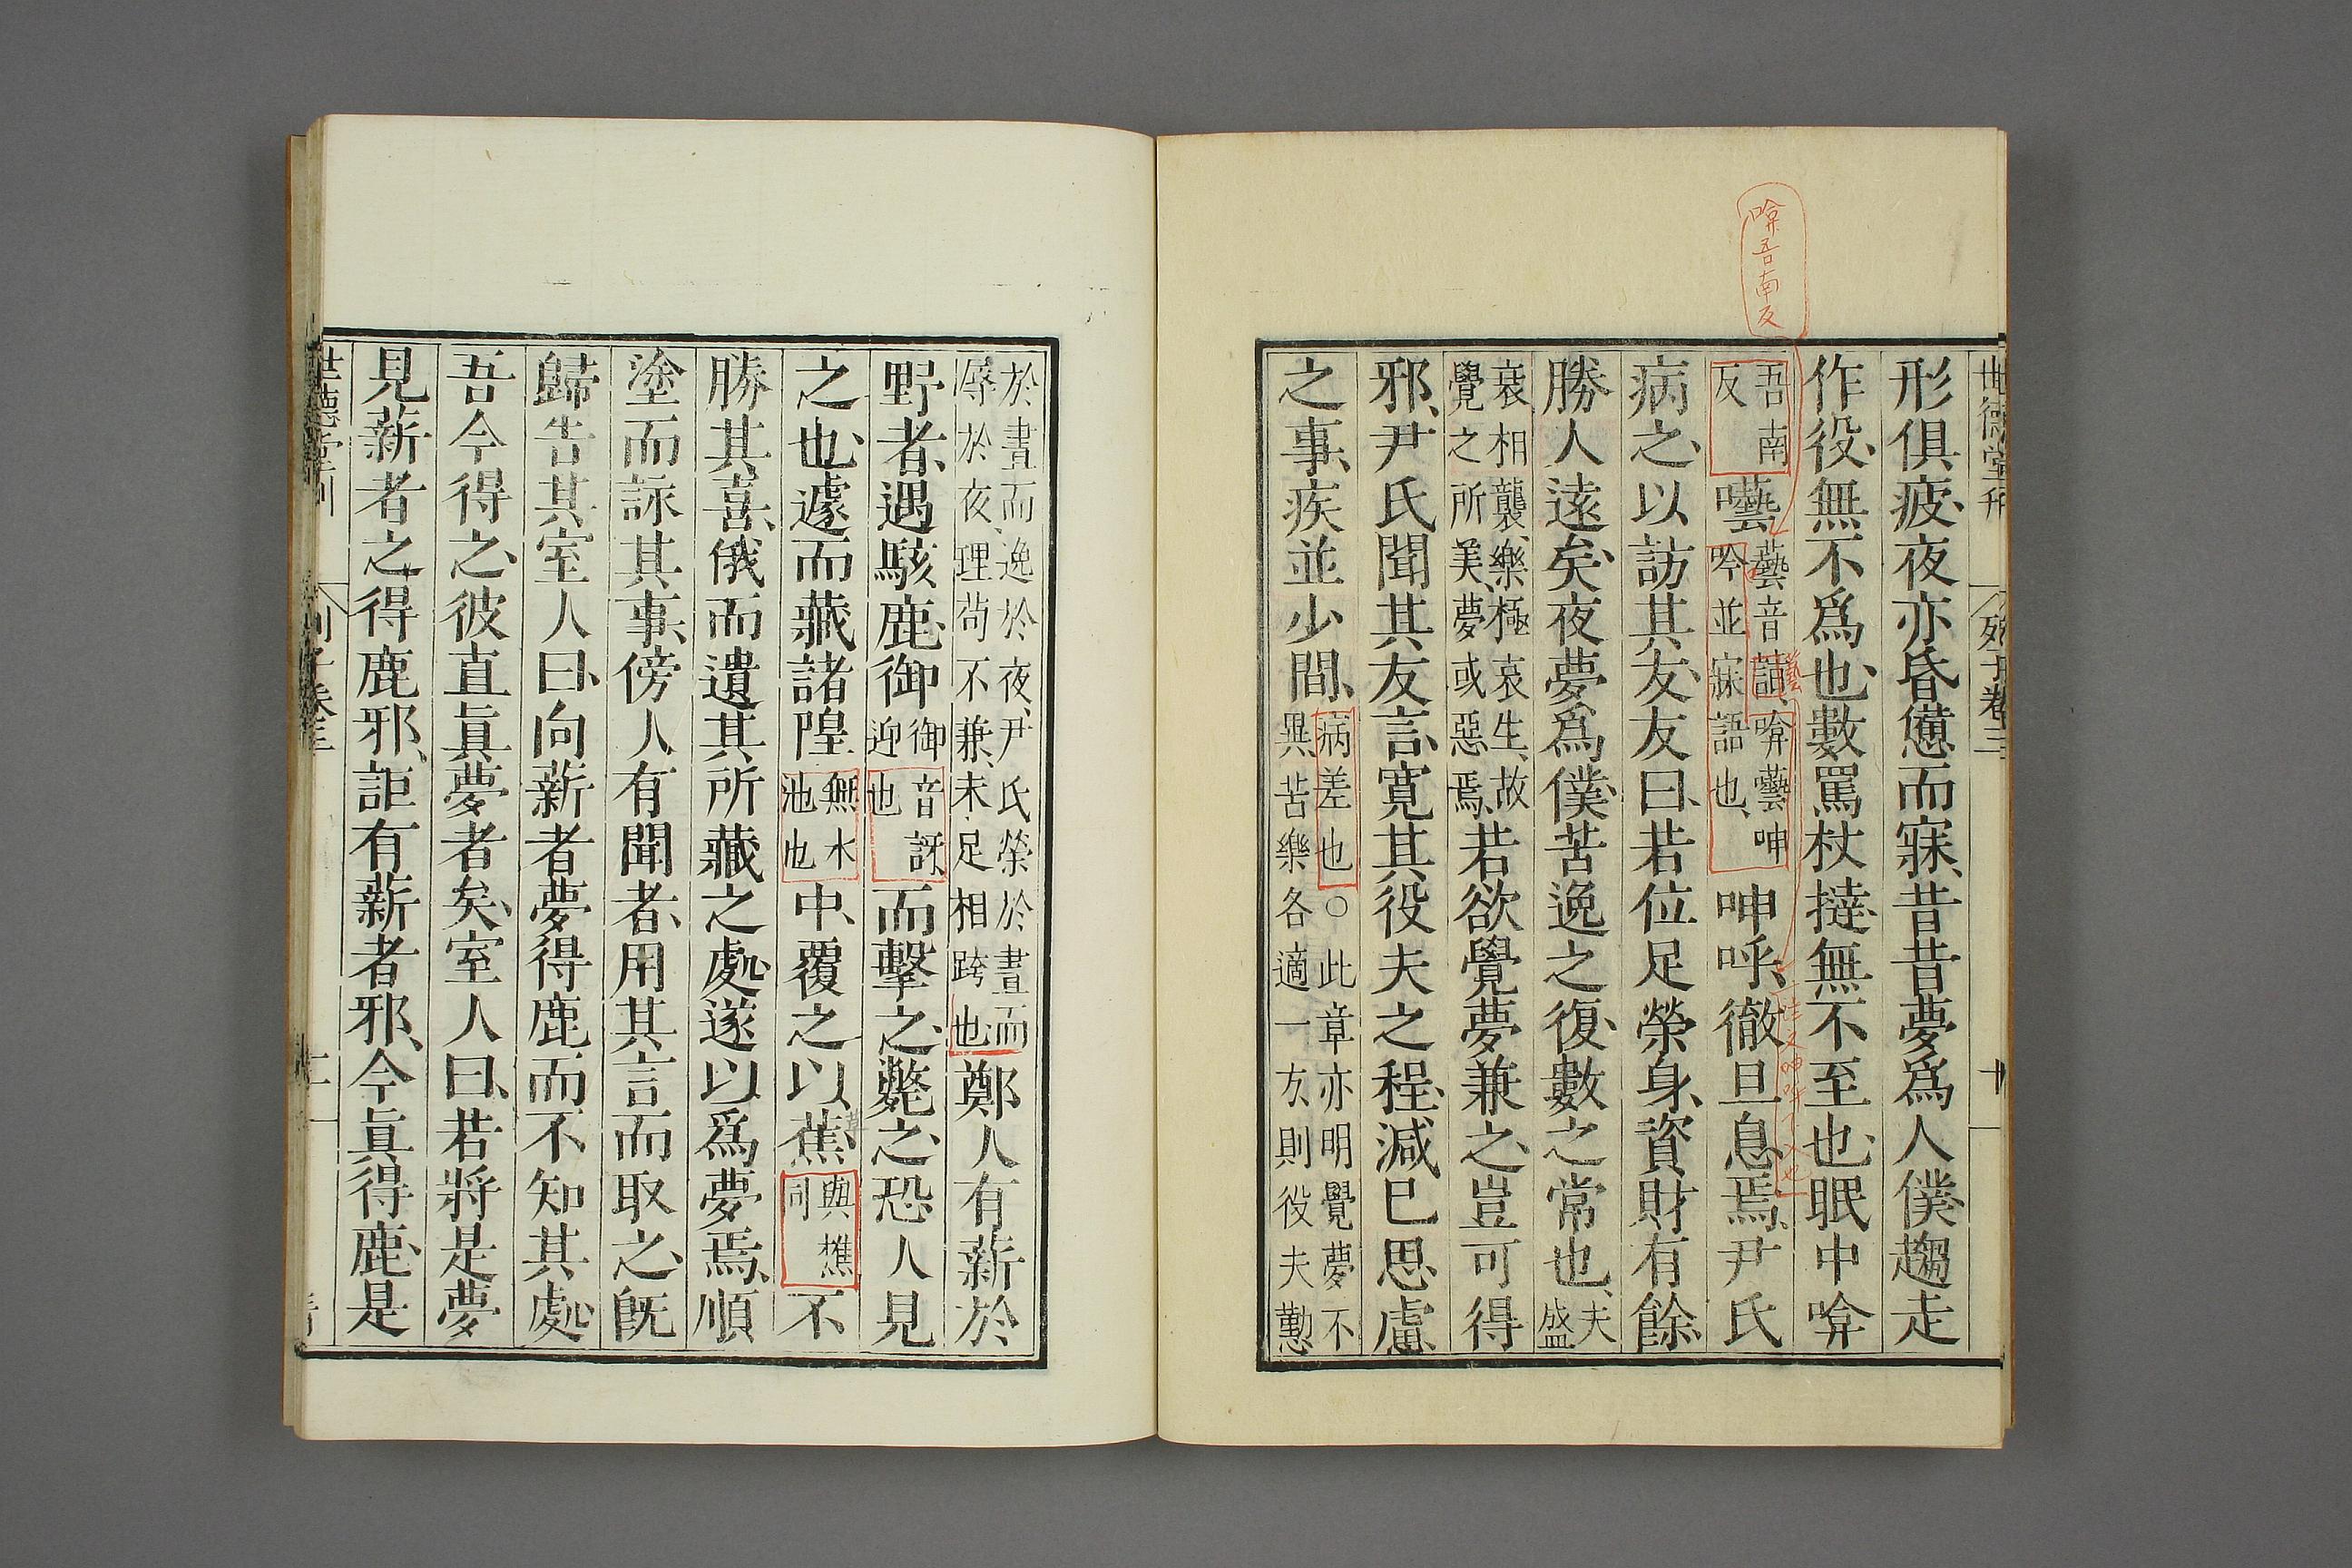 啽吾南反
世德堂刊
列子卷三
十
形俱疲夜亦昏憊而寐昔昔夢爲人僕趨走
作役無不爲也數罵杖撻無不至也眠中啽
吾南反囈囈音詣啽囈呻吟並寐語也呻呼徹旦息焉尹氏
病之以訪其友友曰若位足榮身資財有餘
勝人遠矣夜夢爲僕苦逸之復數之常也夫盛
衰相襲樂極哀生故覺之所美夢或惡焉若欲覺夢兼之豈可得
邪尹氏聞其友言寬其役夫之程減已思慮
之事疾並少間病差也○此章亦明覺夢不異苦樂各適一方則役夫勤
於晝而逸於夜尹氏榮於晝而辱於夜理苟不兼未足相跨也鄭人有薪於
野者遇駭鹿御御音訝迎也而擊之斃之恐人見
之也遽而藏諸隍無水池也中覆之以蕉與樵同不
勝其喜俄而遺其所藏之處遂以爲夢焉順
塗而詠其事傍人有聞者用其言而取之旣
歸告其室人曰向薪者夢得鹿而不知其處
吾今得之彼直眞夢者矣室人曰若將是夢
見薪者之得鹿邪詎有薪者邪今眞得鹿是
世德堂刊
列子卷三